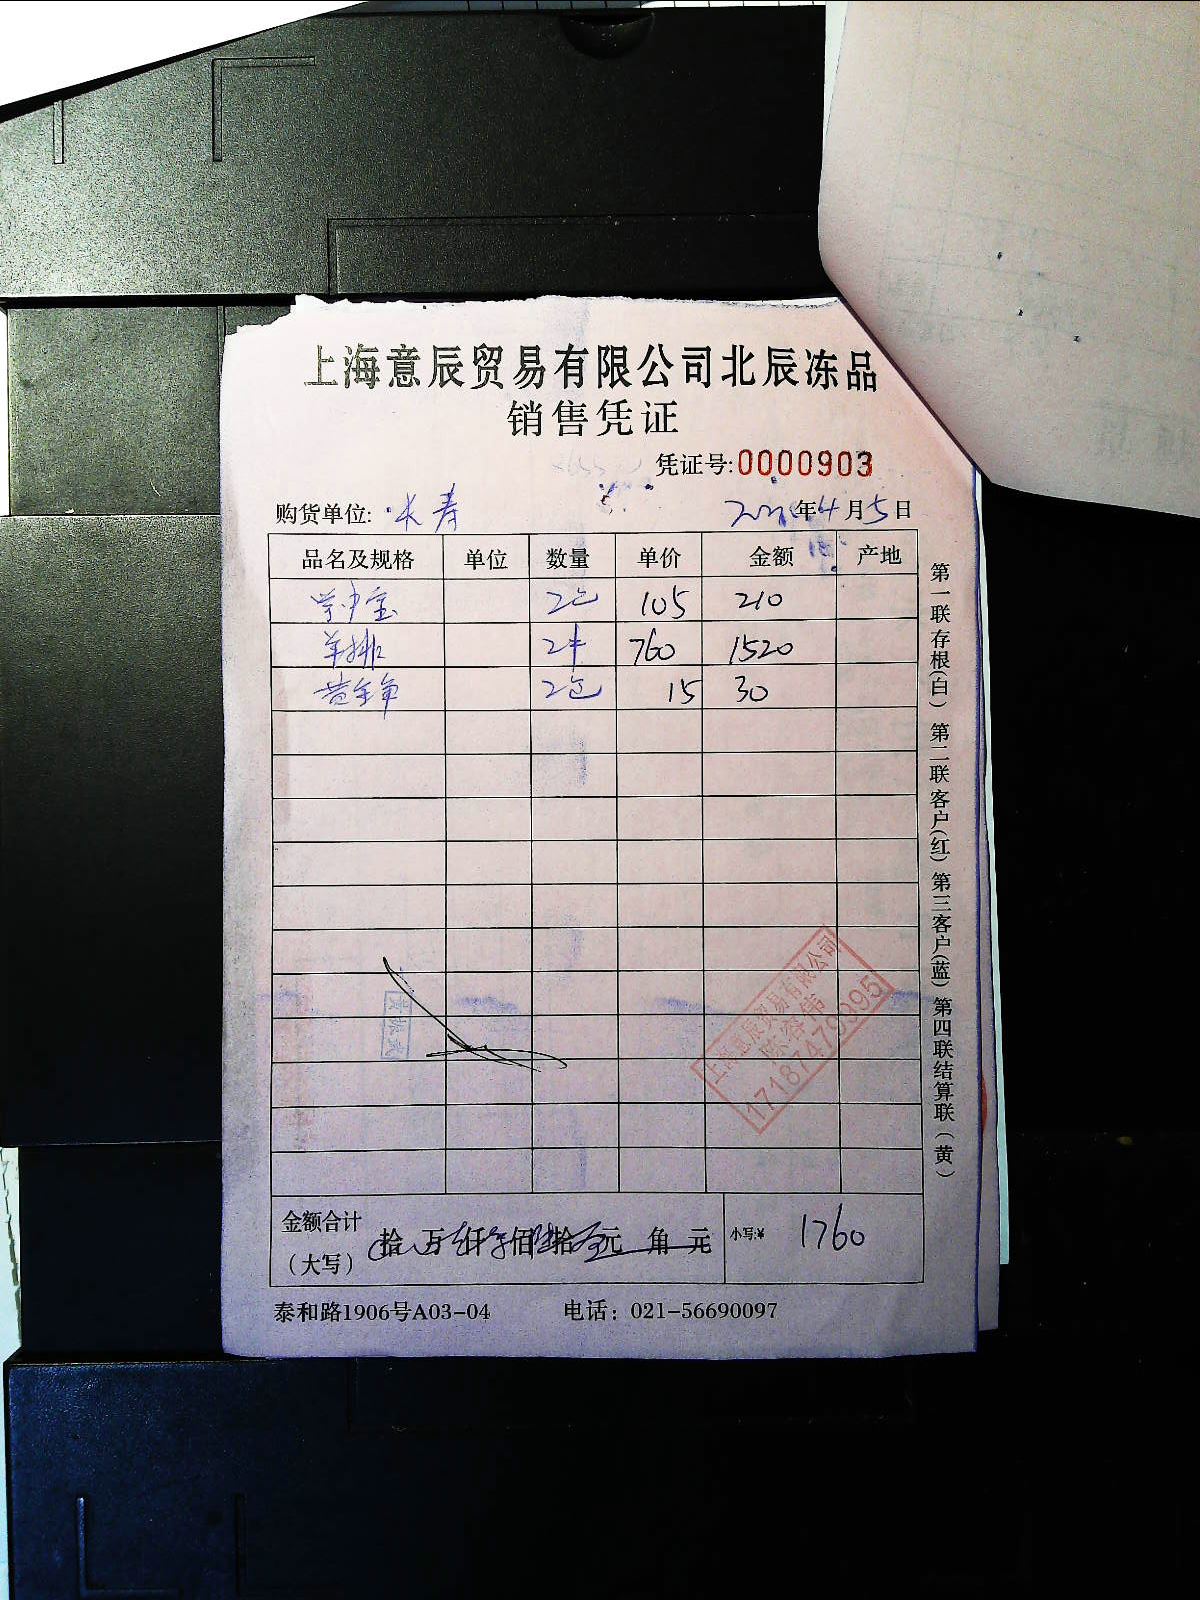 上海意辰贸易有限公司北辰冻品
销售凭证
凭证号:0000903
购货单位: 长寿 年4月5日
品名及规格 单位 数量 单价 金额 产地
2包 105 210
羊排 2件 760 1520
2包 15 30
第一联存根(白) 第二联客户(红) 第三客户(蓝) 第四联结算联(黄)
上海意辰贸易有限公司
陈容伟
17187470995
金额合计
(大写) 拾 万 仟 佰 拾 元 角 元 小写:¥ 1760
泰和路1906号A03-04 电话: 021-56690097